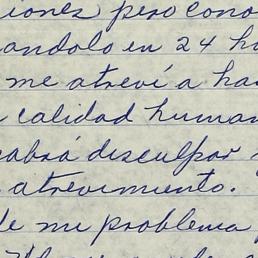 iones pero cono
andolo en 24 ho
me atreví a ha
calidad human
cabrá disculpar
atrevimiento.
de mi problema